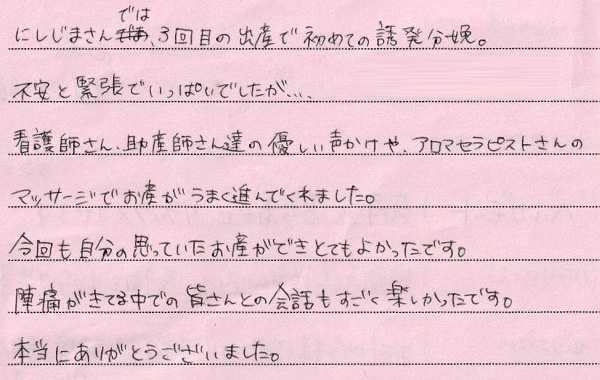 にしじまさんでは、3回目の出産で初めての誘発分娩。
不安と緊張でいっぱいでしたが、、、
看護師さん、助産師さん達の優しい声かけや、アロマセラピストさんの
マッサージでお産がうまく進んでくれました。
今回も自分の思っていたお産ができとてもよかったです。
陣痛がきてる中での皆さんとの会話もすごく楽しかったです。
本当にありがとうございました。